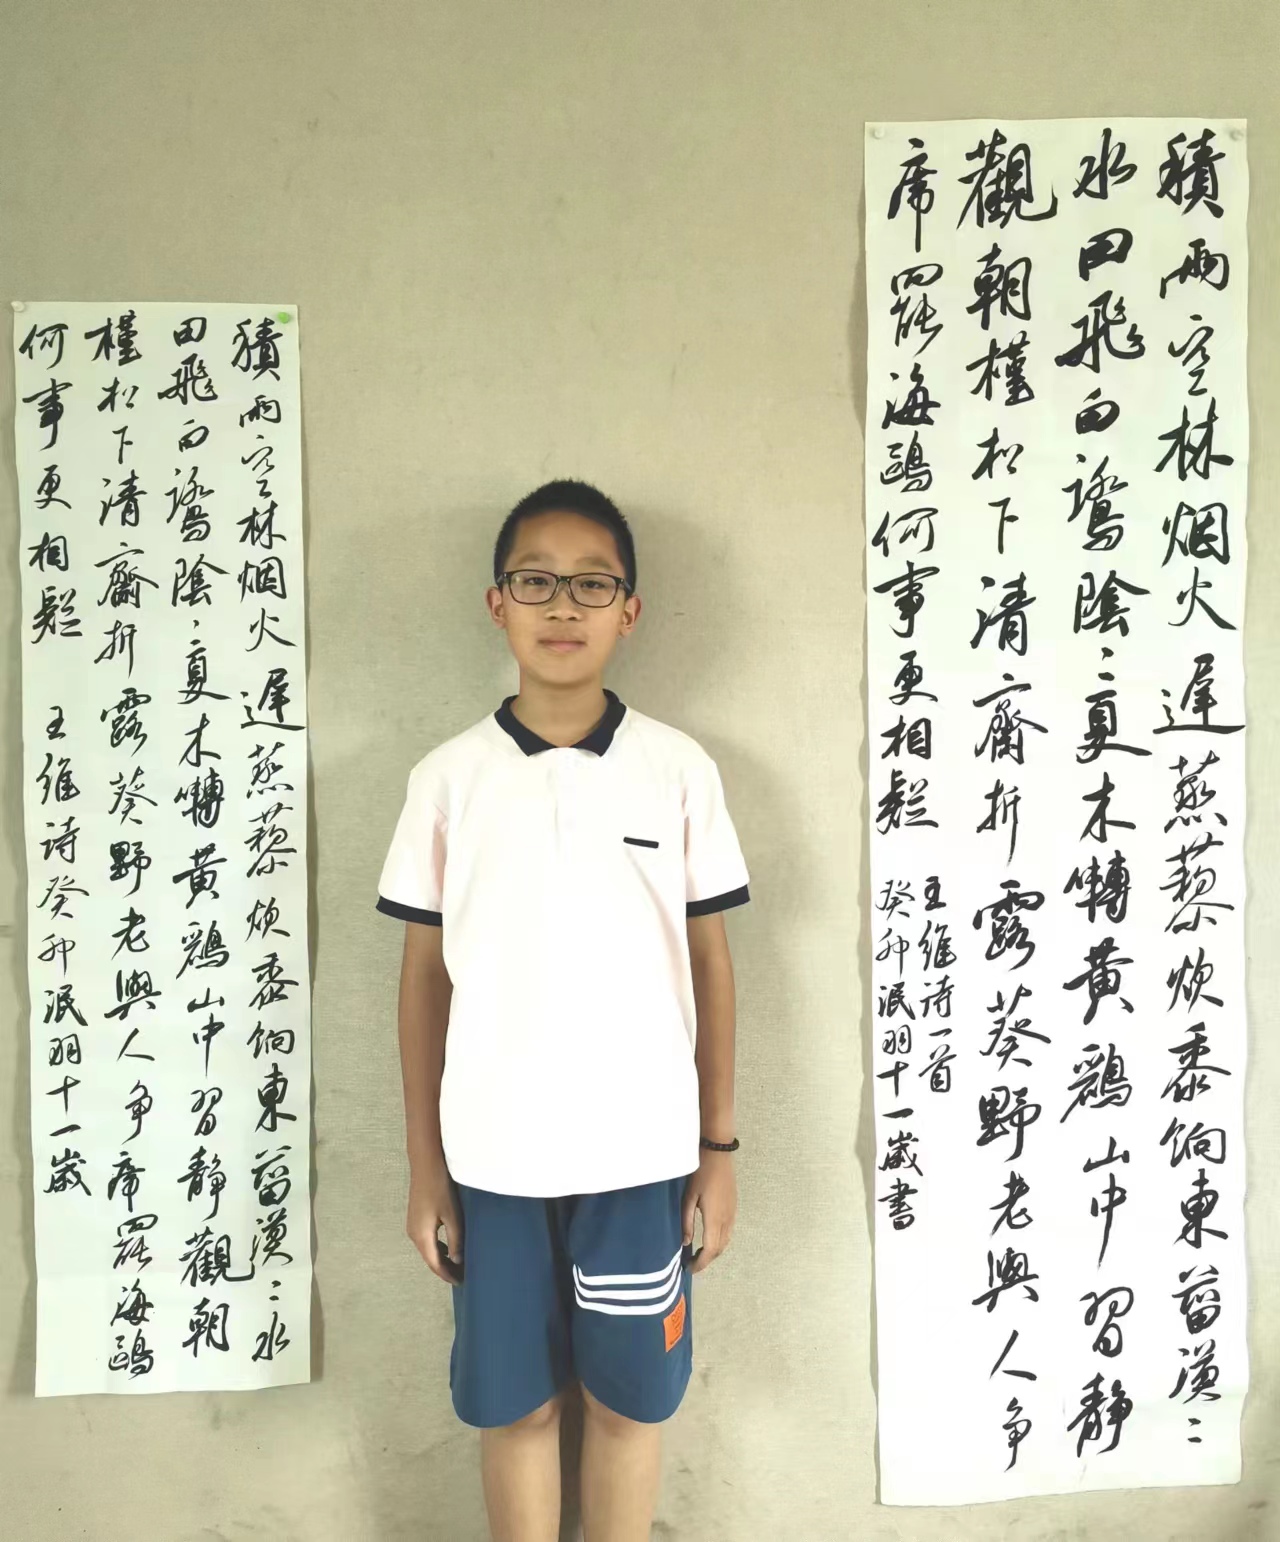 積雨空林烟火遲蒸藜炊黍饷東菑漠〻
水田飛白鷺陰〻夏木囀黄鸝山中習靜
觀朝槿松下清齋折露葵野老與人争
席罷海鷗何事更相疑
王維诗一首
癸卯泯羽十一歲書
積雨空林烟火遲蒸藜炊黍饷東菑漠〻水
田飛白鷺陰〻夏木囀黄鸝山中習靜觀朝
槿松下清齋折露葵野老與人争席罷海鷗
何事更相疑 王維诗癸卯泯羽十一歲